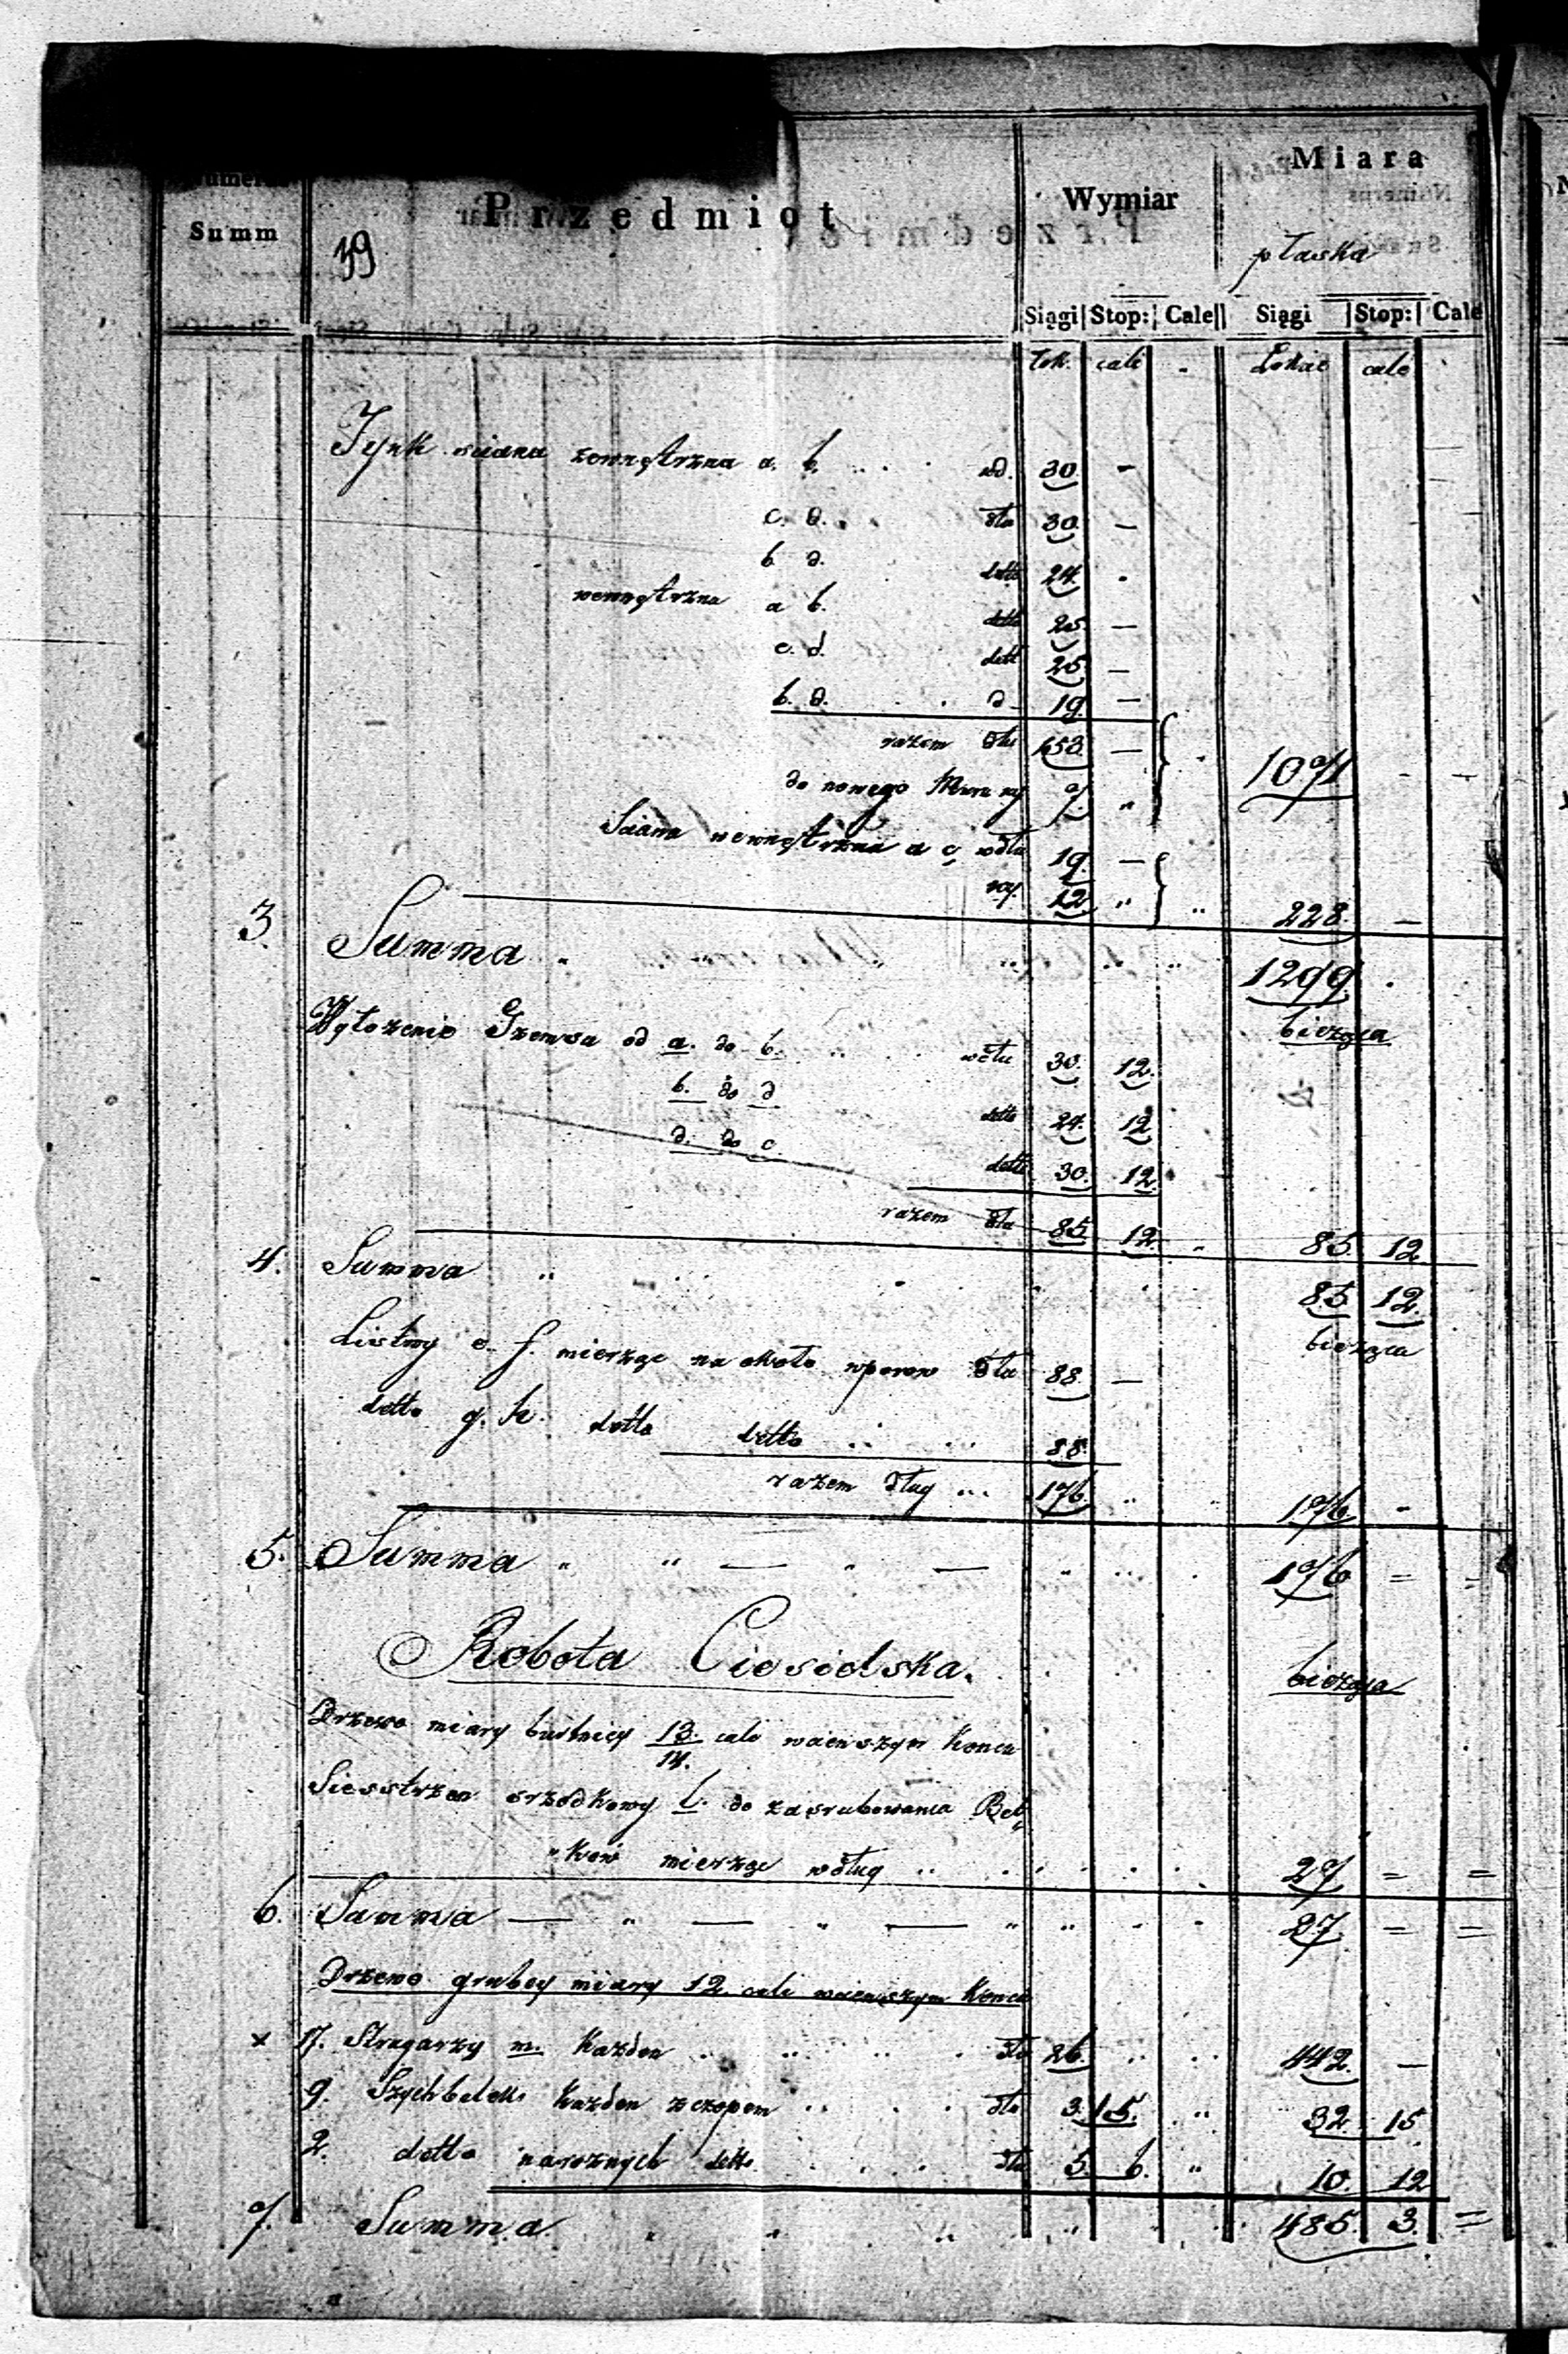 Summ
Przedmiot
Wymiar
Miara
płaska
39
Siągi Stop: Cale Siągi Stop: Cale
łok. cali " Łokcie cale
Tynk sciana zewnętrzna a. b. . . . wd. 30. –
c. d. . . dłu 30. –
b d. detto 24. "
wewnętrzna a b. detto 25 –
c. d. dett 25 –
b. d. . . d 19. –
razem dłu 153. –
do nowego Muru wy 7. " 1071 - -
Sciana wewnętrzna a c, wdłu 19. –
wy. 12 " " 228. –
3. Summa " " " " " 1299. .
bieząca
Wyłozenie Gzemsu od a. do b. " wdłu 30. 12.
b. do d detto 24. 12
d. do c. detto 30. 12.
razem dłu 85. 12. " 85. 12
4. Summa " . . . 85 12.
bieząca
Listwy e. f. mierząc na około wporow dłu 88. –
detto g. h. detto detto . . . . 88.
razem dług ... 176. " " 176. -
5. Summa " " — " — " " . 176 = =
Robota Ciesielska.
bieząca
Drzewo miary 13./14. cale wcienszym Koncu
Siesstrzan srzodkowy l. do zasrubowania Bel,
"kow mierząc wdług . . . . . 27 = =
6. Summa — " — " — " " " . 27 = =
Drzewo grubey miary 12 cali wcienszym Koncu
x 17. Stragarzy m. Kazden . . . . dłu 26. . . 442. –
9. Sztychbalek Kazden zczopem . . . dłu 3. 15. " 32 15
2. detto naroznych detto . . . . dłu 5. 6. " 10. 12
7. Summa . " " " " . . 485. 3. =